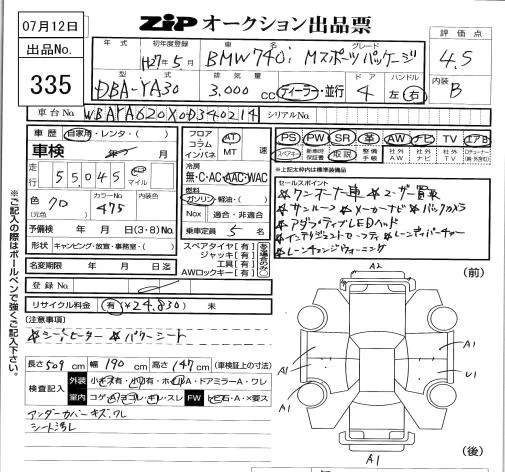 07月12日
ZIP オークション出品票
出品No.
335
年式
初年度登録
H27年5月
車名
グレード
BMW740i Mスポーツパッケージ
評価点
4.5
型式
DBA-YA30
排気量
3,000cc
ディーラー・並行
ドア
4
ハンドル
左・右
内装
B
車台No.
WBAYA620X0D340214
シリアルNo.
車歴
自家用・レンタ・( )
車検
年 月
走行
55045
km
マイル
色
クロ
(元色)
カラーNo
475
内装色
予備検
年 月 日(3・8)No.
形状
キャンピング・放宣・事務室・( )
名変期限
年 月 日迄
登録No.
リサイクル料金
有(¥24,830) 未
フロア
コラム
インパネ
AT
MT
速
冷房
無・C・AC・AAC・WAC
燃料
ガソリン・軽油・( )
Nox
適合・非適合
乗車定員
5名
スペアタイヤ[有]
ジャッキ[有]
工具[有]
AWロックキー[有]
PS PW SR 革 AW ナビ TV エアB
スペアキー
新車時保証書
取説
整備手帳
社外AW
社外ナビ
社外TV
※上記太枠内は標準装備品
セールスポイント
☆ワンオーナー車 ☆ユーザー買取
☆サンルーフ ☆メーカーナビ ☆バックカメラ
☆アダプティブLEDヘッド
☆インテリジェントセーフティ ☆レーンディパーチャー
☆レーンチェンジウォーニング
[注意事項]
☆シートヒーター ☆パワーシート
長さ509cm 幅190cm 高さ147cm (車検証上の寸法)
検査記入
外装
小キズ有・小凹有・ホイルA・ドアミラーA・ワレ
室内
コゲ・穴・ヨゴレ・キレ・スレ
FW
トビ石・A・×要ス
アンダーカバーキズ、ワレ
シート汚レ
※ご記入の際はボールペンで強くご記入下さい。
(前)
A2
A1
A1
U1
A1
A1
(後)